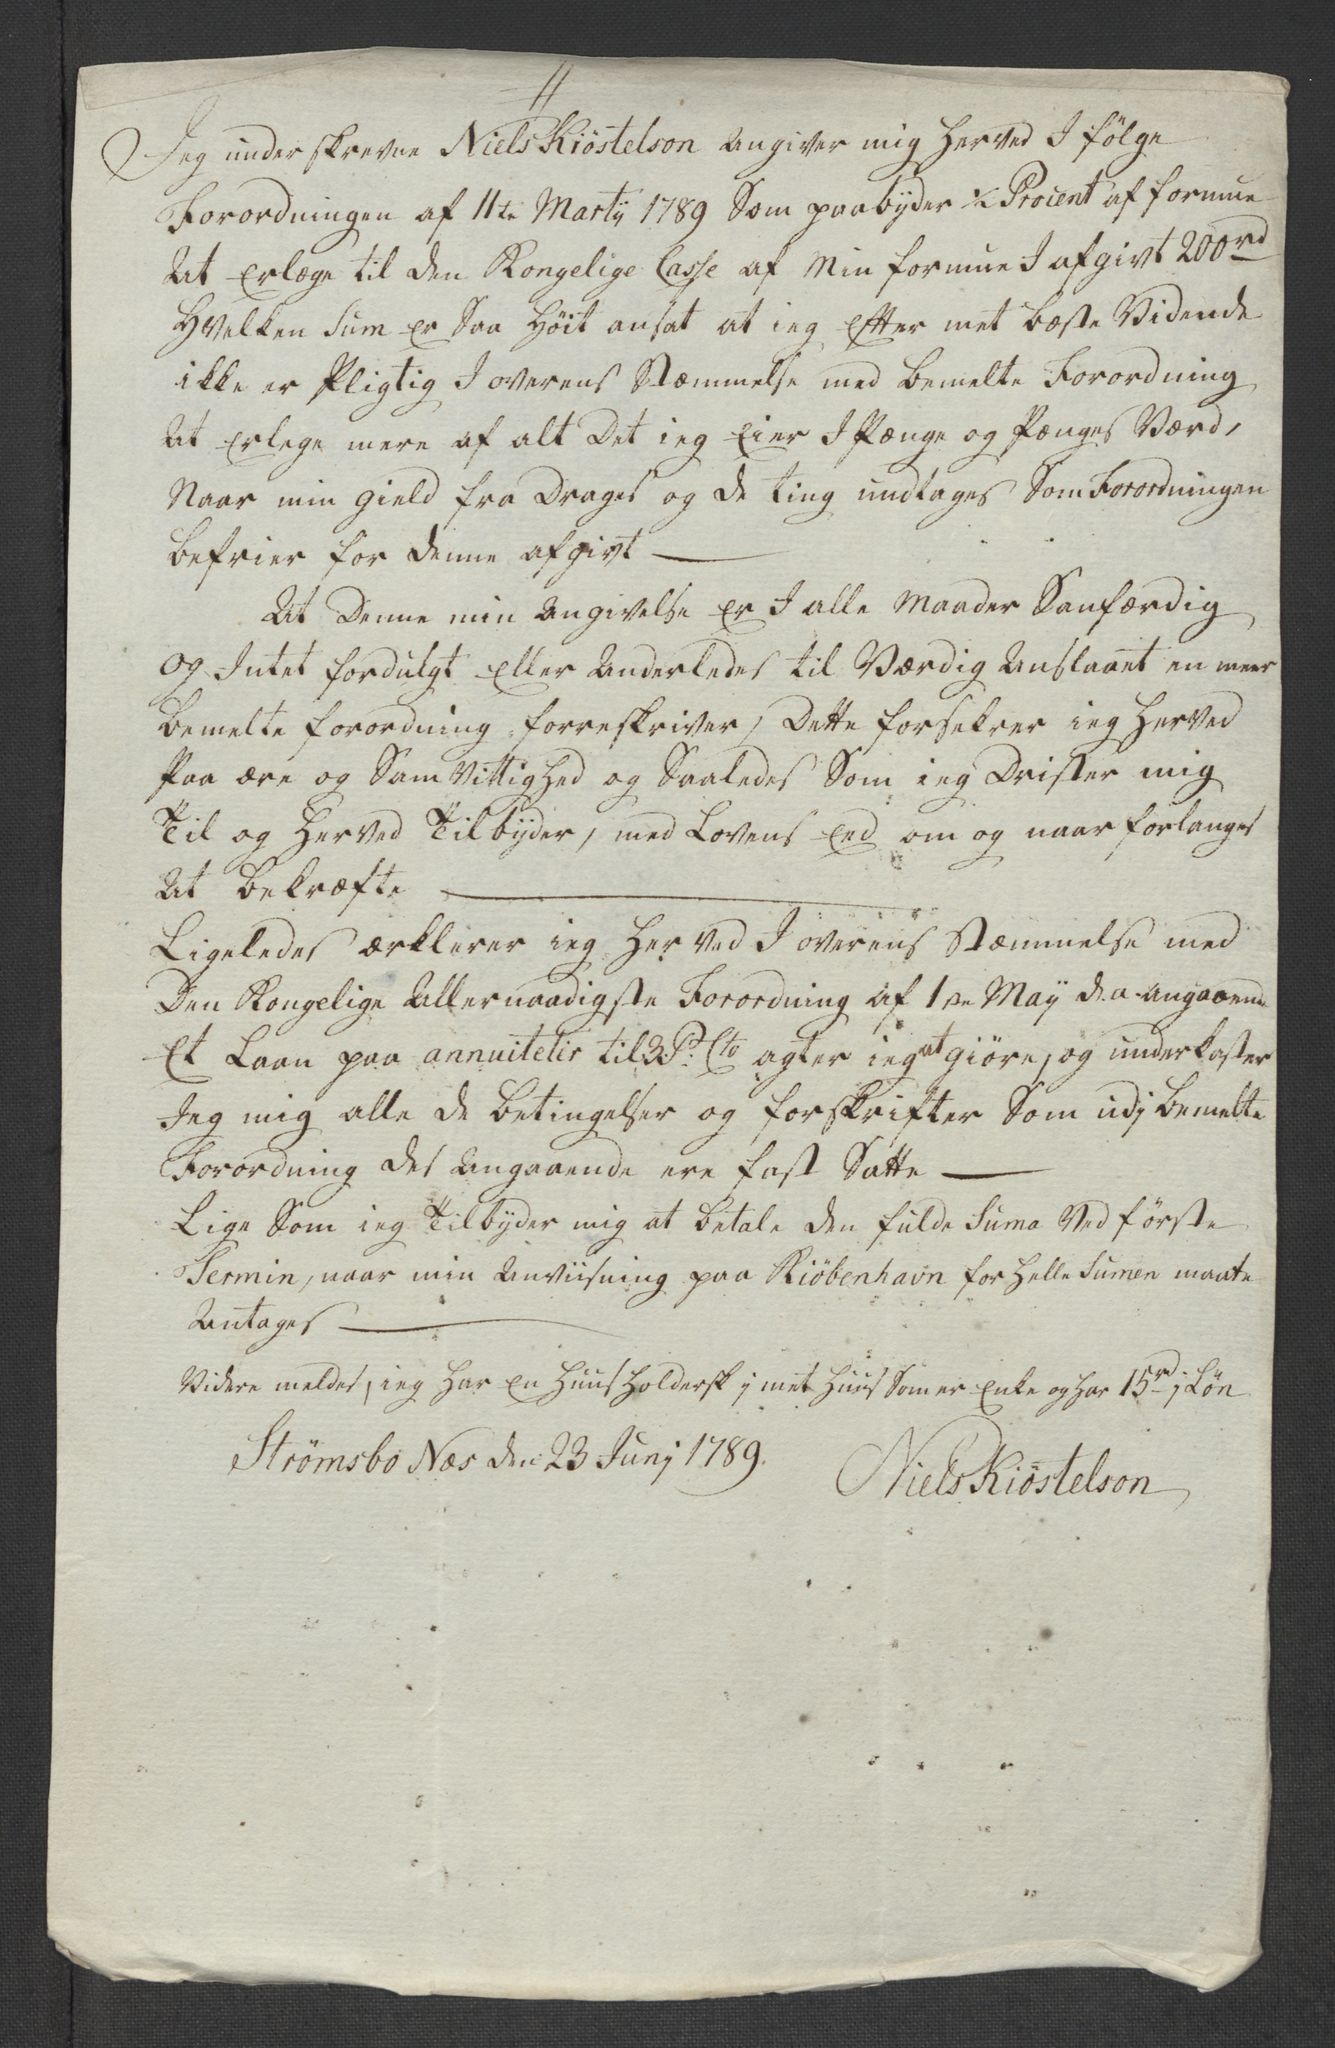 11
Jeg under skrevne Niels Kiöstelson Angiver mig herved I fölge
Forordningen af 11te Martÿ 1789 Som paabÿder ¼ Procent af formue
At Erlæge til den Kongelige Casse af Min formue I afgivt 200rd
Hvelken Sum er Saa Höit ansat at ieg Efter met bæste Vidende
ikke er Pligtig I overens Stæmmelse med bemelte Forordning
At Erlege mere af alt Det ieg Eier I Pænge og Pænges Værd,
Naar min gield fra Drages og de ting undtages Som Forordningen
befrier for denne afgivt
At Denne min Angivelse er I alle Maader Sanfærdig
og Intet fordulgt Eller Anderledes til Værdig Anslaaet en meer
bemelte forordning forreskriver, Dette forsekrer ieg herved
Paa ære og Sam Vittighed og Saaledes Som ieg Drister mig
Til og herved Tilbÿder, med Lovens Eed om og naar forlanges
At bekræfte
Ligeledes ærklerer ieg her ved I overens Stæmmelse med
Den Kongelige Allernaadigste Forordning af 1ste Maÿ d.a. angaaende
Et Laan paa annuiteter til 3 Pr Cto agter ieg at giöre, og underkaster
Jeg mig alle de betingelser og forskrifter Som udj bemelte
Forordning des Angaaende ere fast Satte
Lige Som ieg Tilbÿder mig at betale den fulde Suma Ved förste
Termin, naar min Anviisning paa Kiöbenhavn for helle Sumen maate
Antages
Videre meldes, ieg har en huus holdersk j met huus Som er Enke og har 15rd j Lön
Strömsboe Næs den 23 Junj 1789.
Niels Kiöstelson